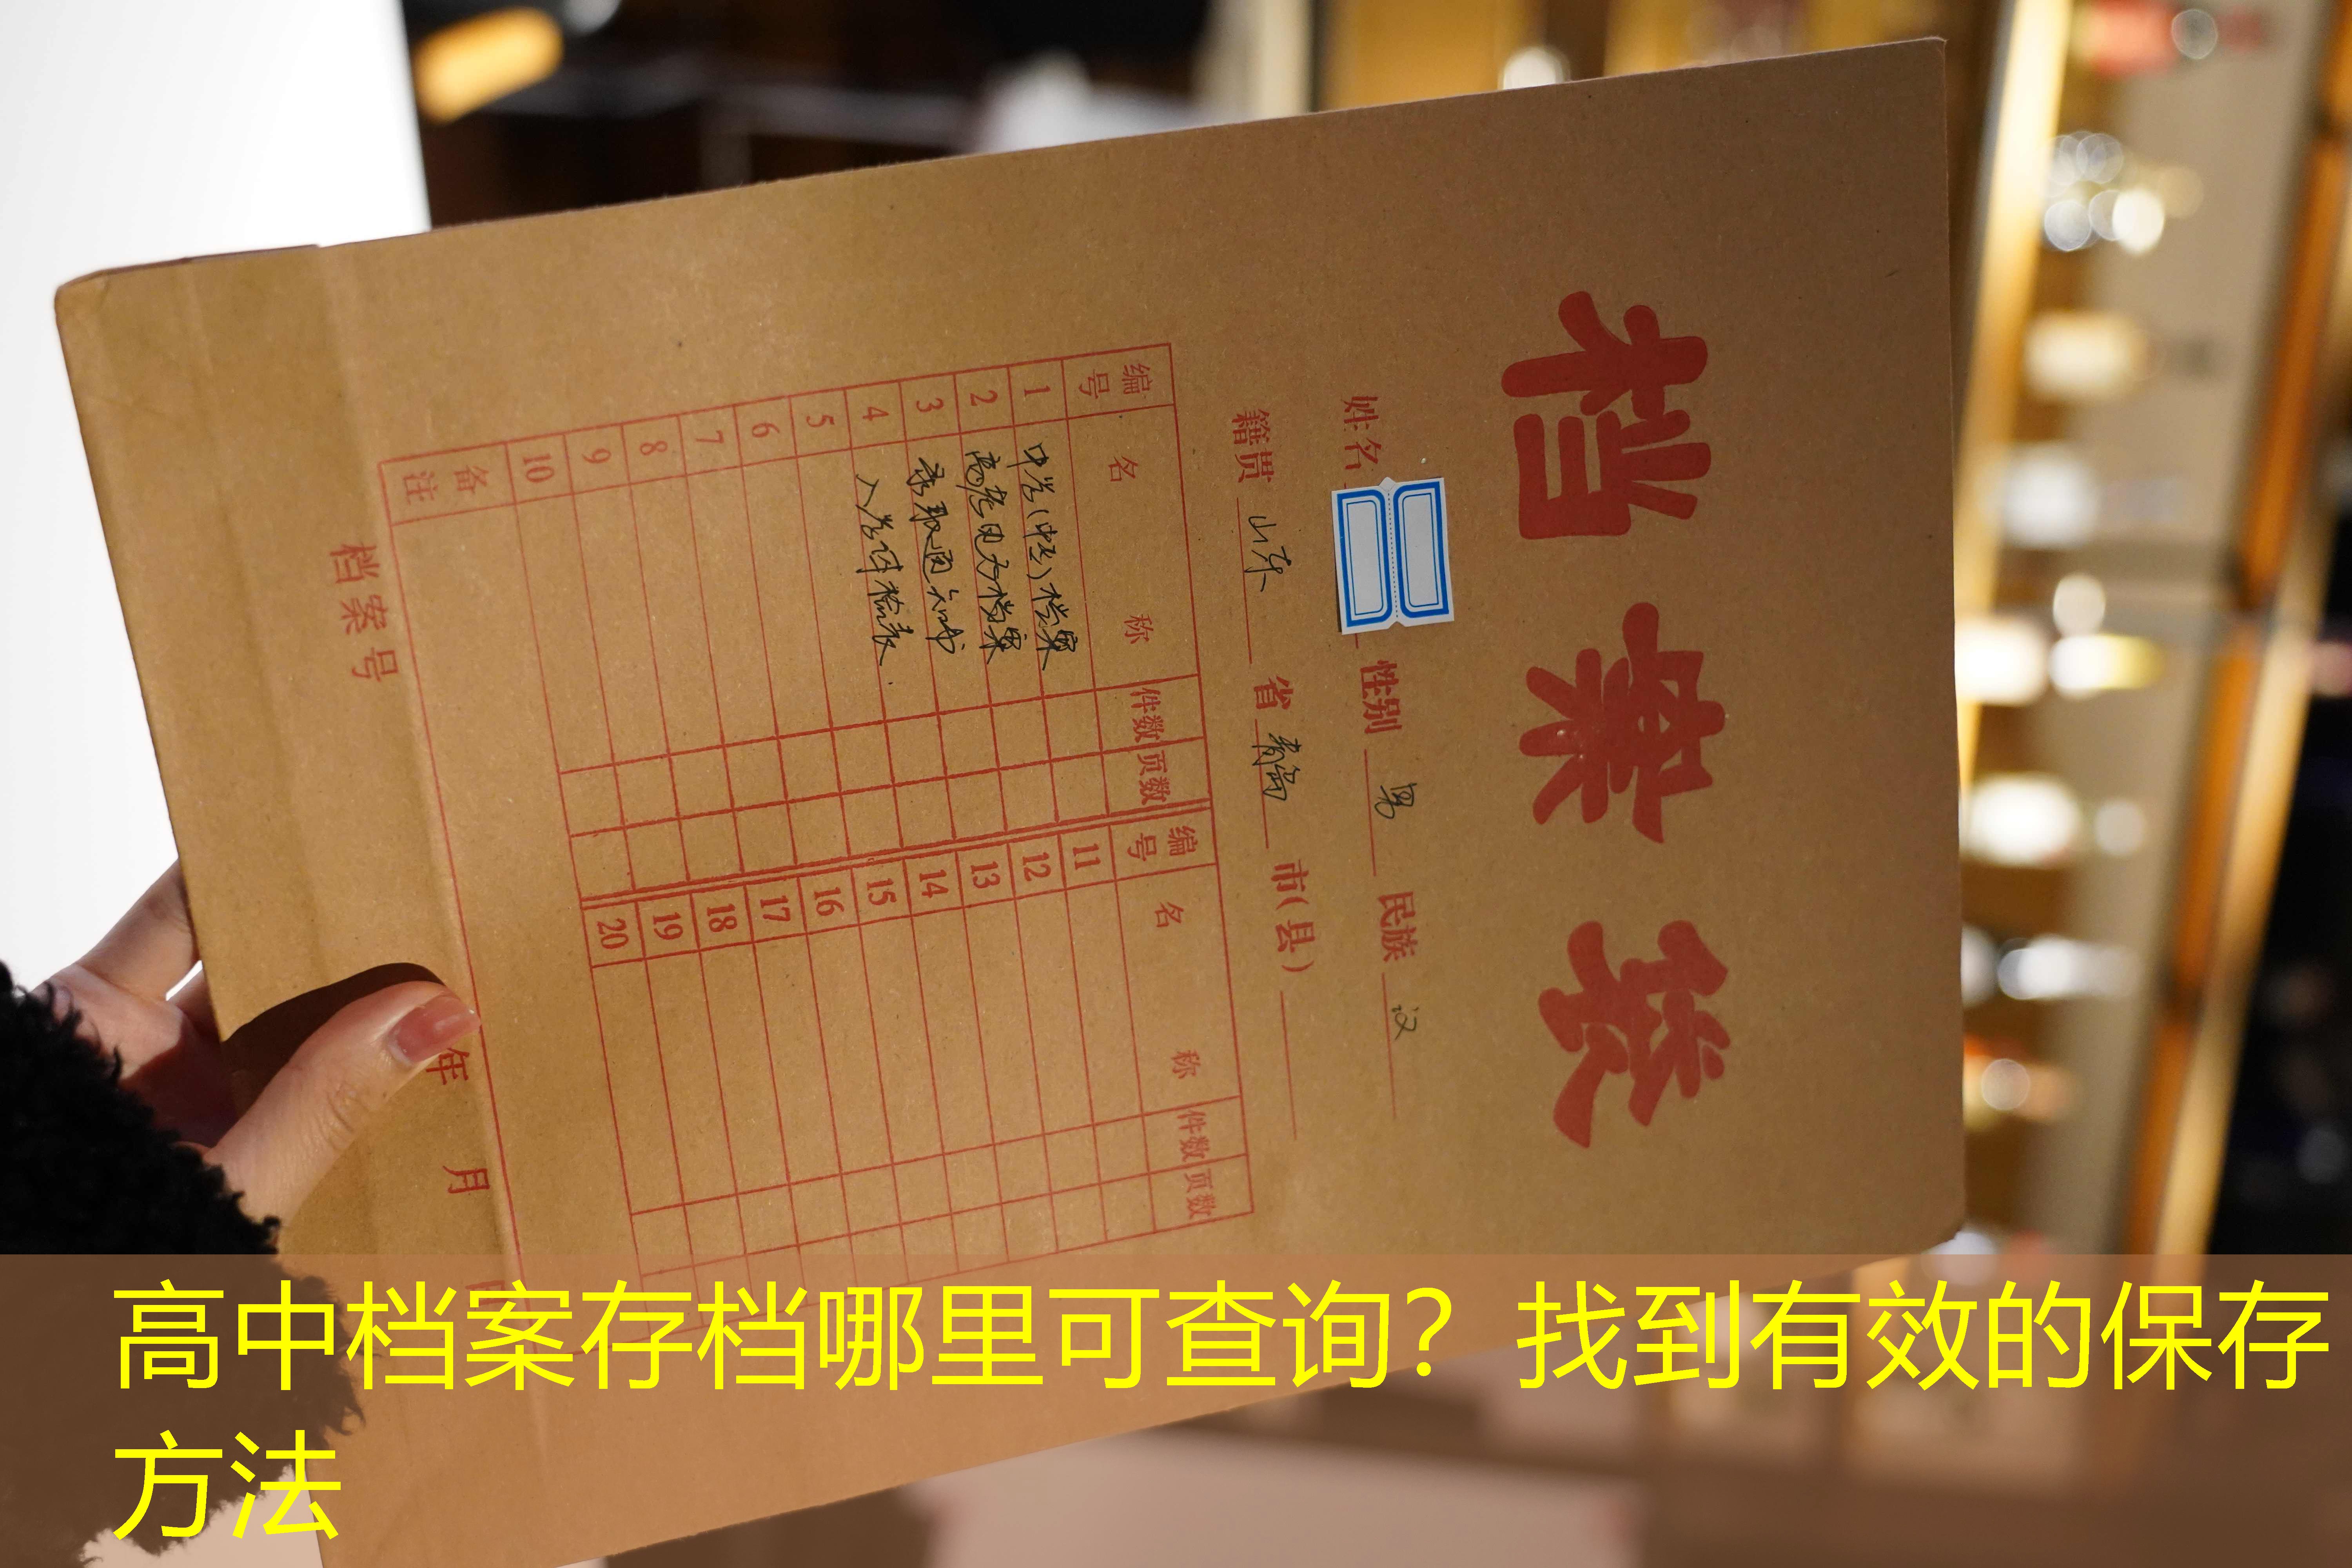 档案袋
姓名 性别 男 民族 汉
籍贯 山东 省 青岛 市(县)
编号 名称 件数 页数 编号 名称 件数 页数
1 中学(中专)档案 11
2 高考电子档案 12
3 录取通知书 13
4 入学体检表 14
5 15
6 16
7 17
8 18
9 19
10 20
备注
档案号 年 月 日
高中档案存档哪里可查询？找到有效的保存
方法